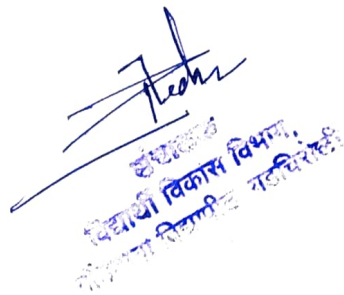 संचालक
विद्यार्थी विकास विभाग,
गोंडवाना विद्यापीठ गडचिरोली